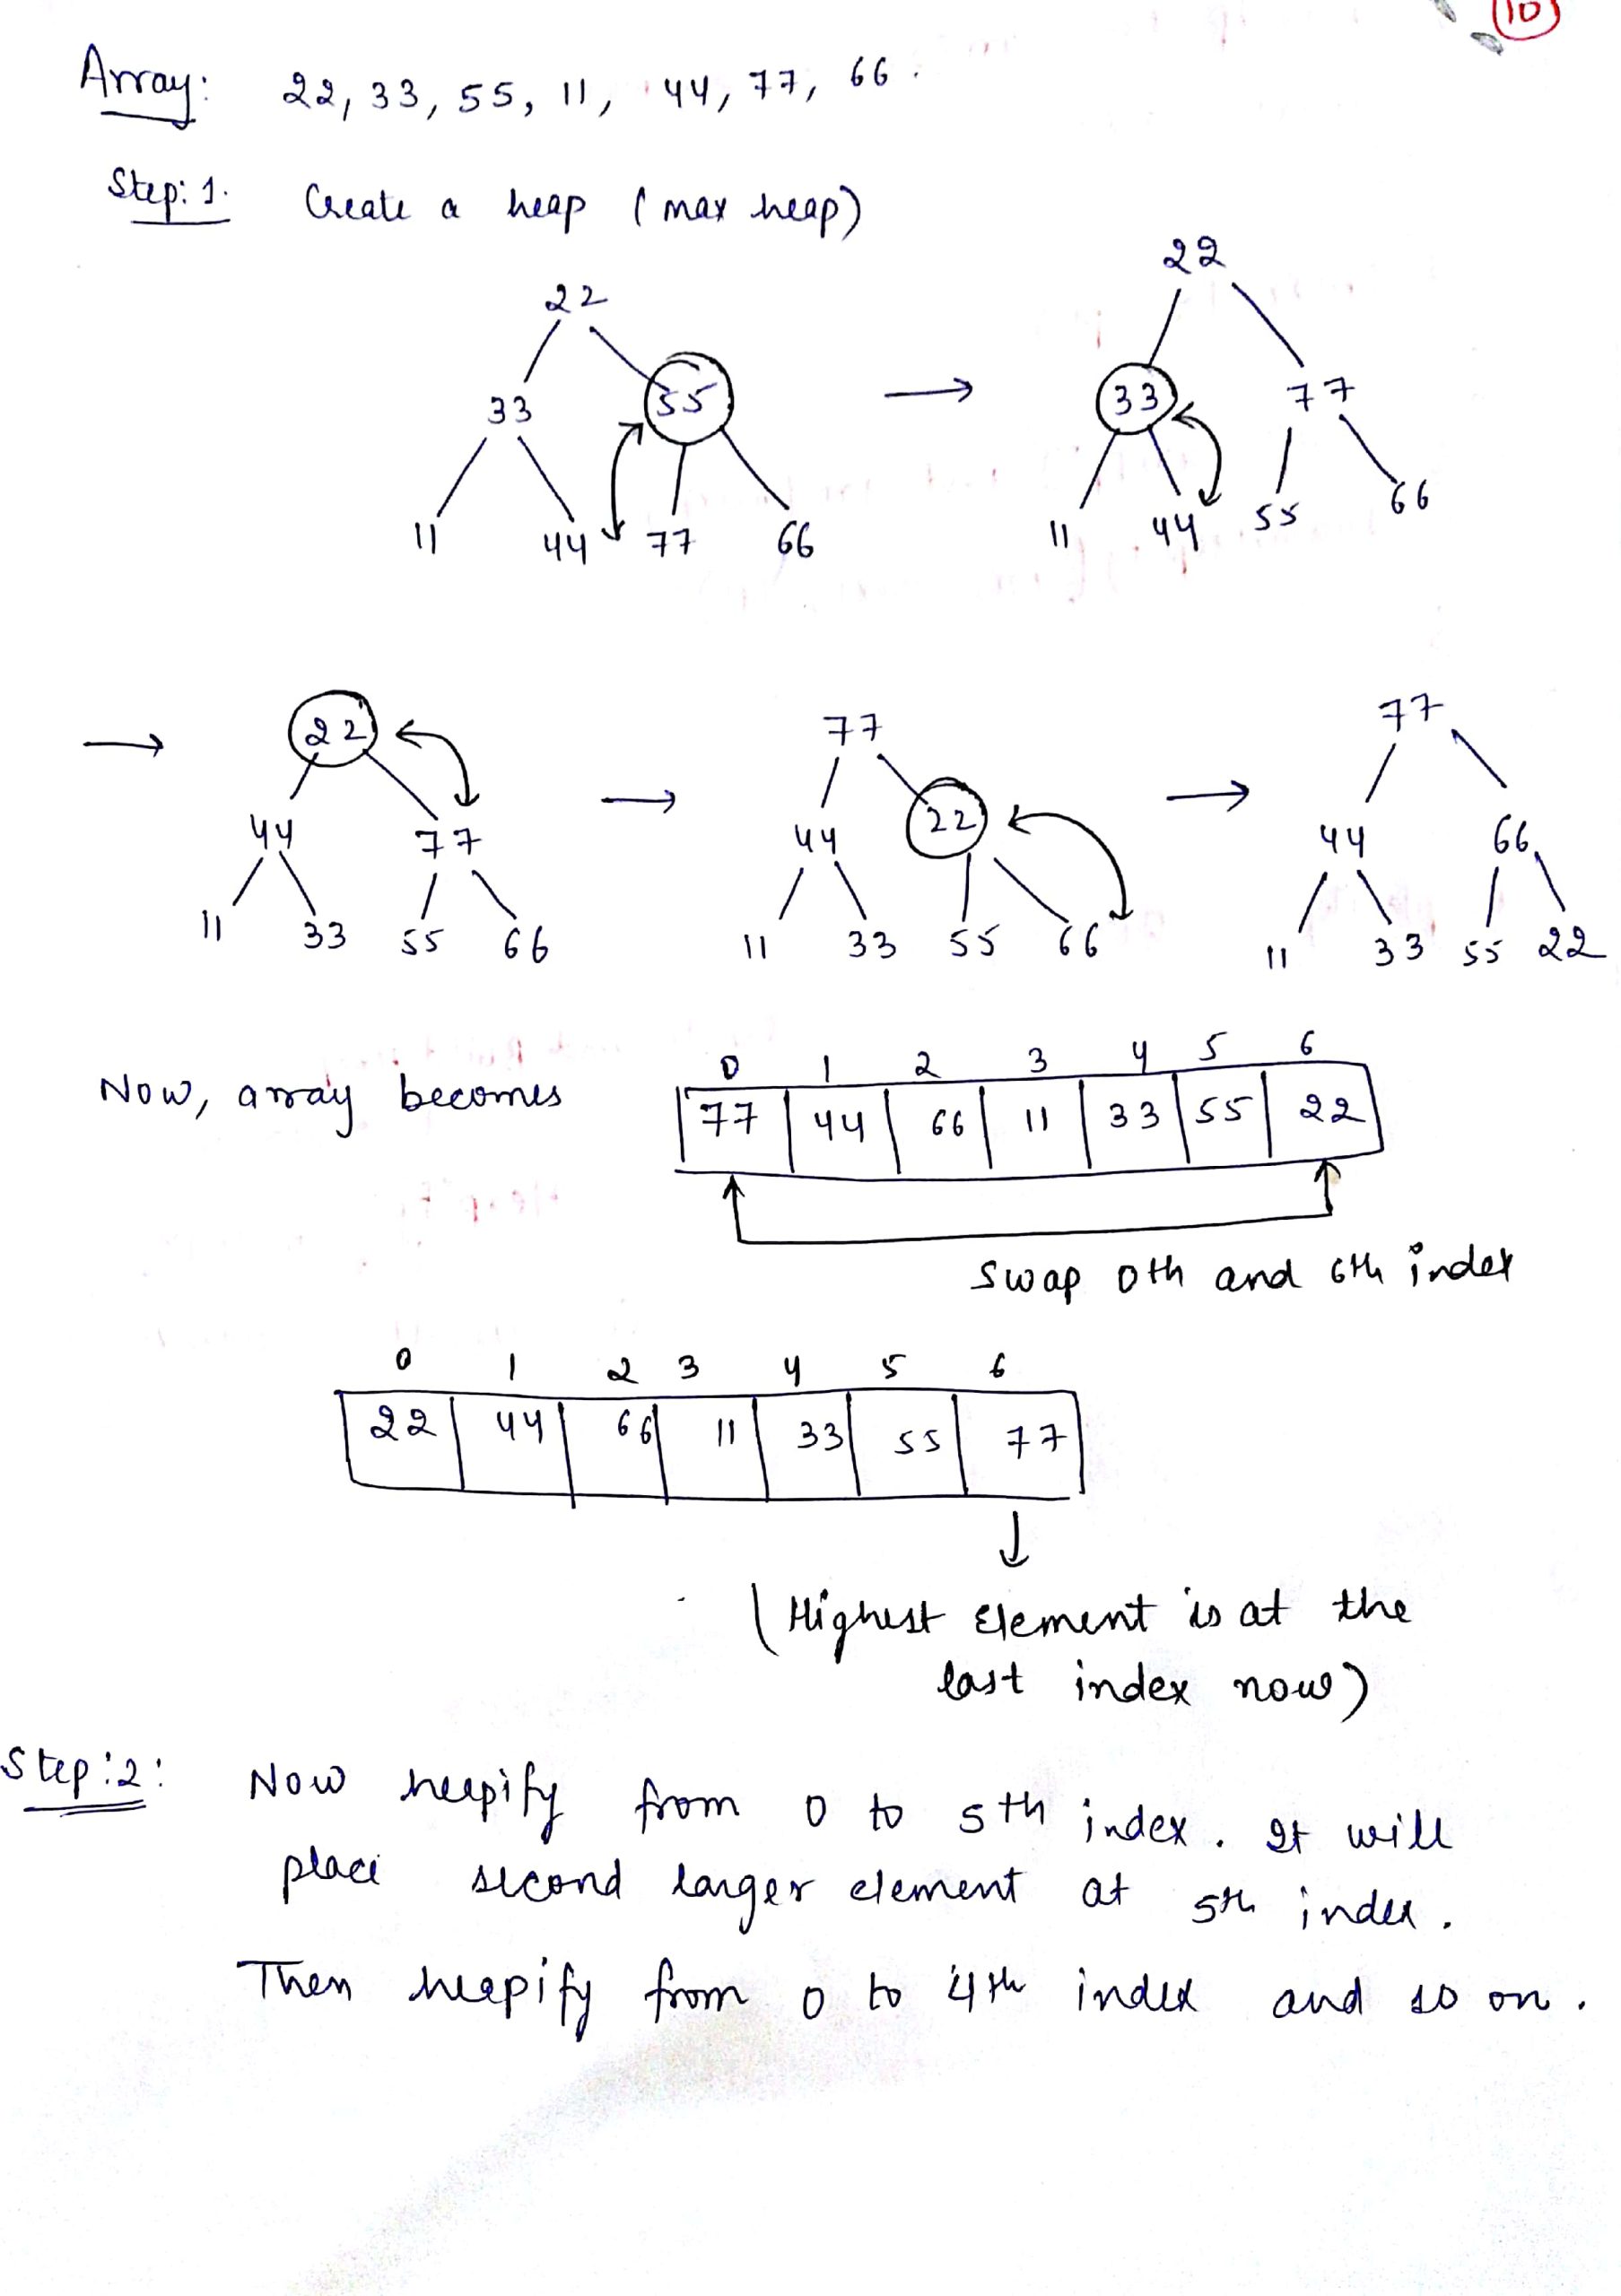 10
Array: 22, 33, 55, 11, 44, 77, 66.
Step: 1. Create a heap (max heap)
22 22
33 55 → 33 77
11 44 77 66 11 44 55 66
→ 22 → 77 → 77
44 77 44 22 44 66
11 33 55 66 11 33 55 66 11 33 55 22
0 1 2 3 4 5 6
Now, array becomes 77 44 66 11 33 55 22
Swap 0th and 6th index
0 1 2 3 4 5 6
22 44 66 11 33 55 77
(Highest Element is at the
last index now)
Step:2: Now heapify from 0 to 5th index. It will
place second larger element at 5th index.
Then heapify from 0 to 4th index and so on.